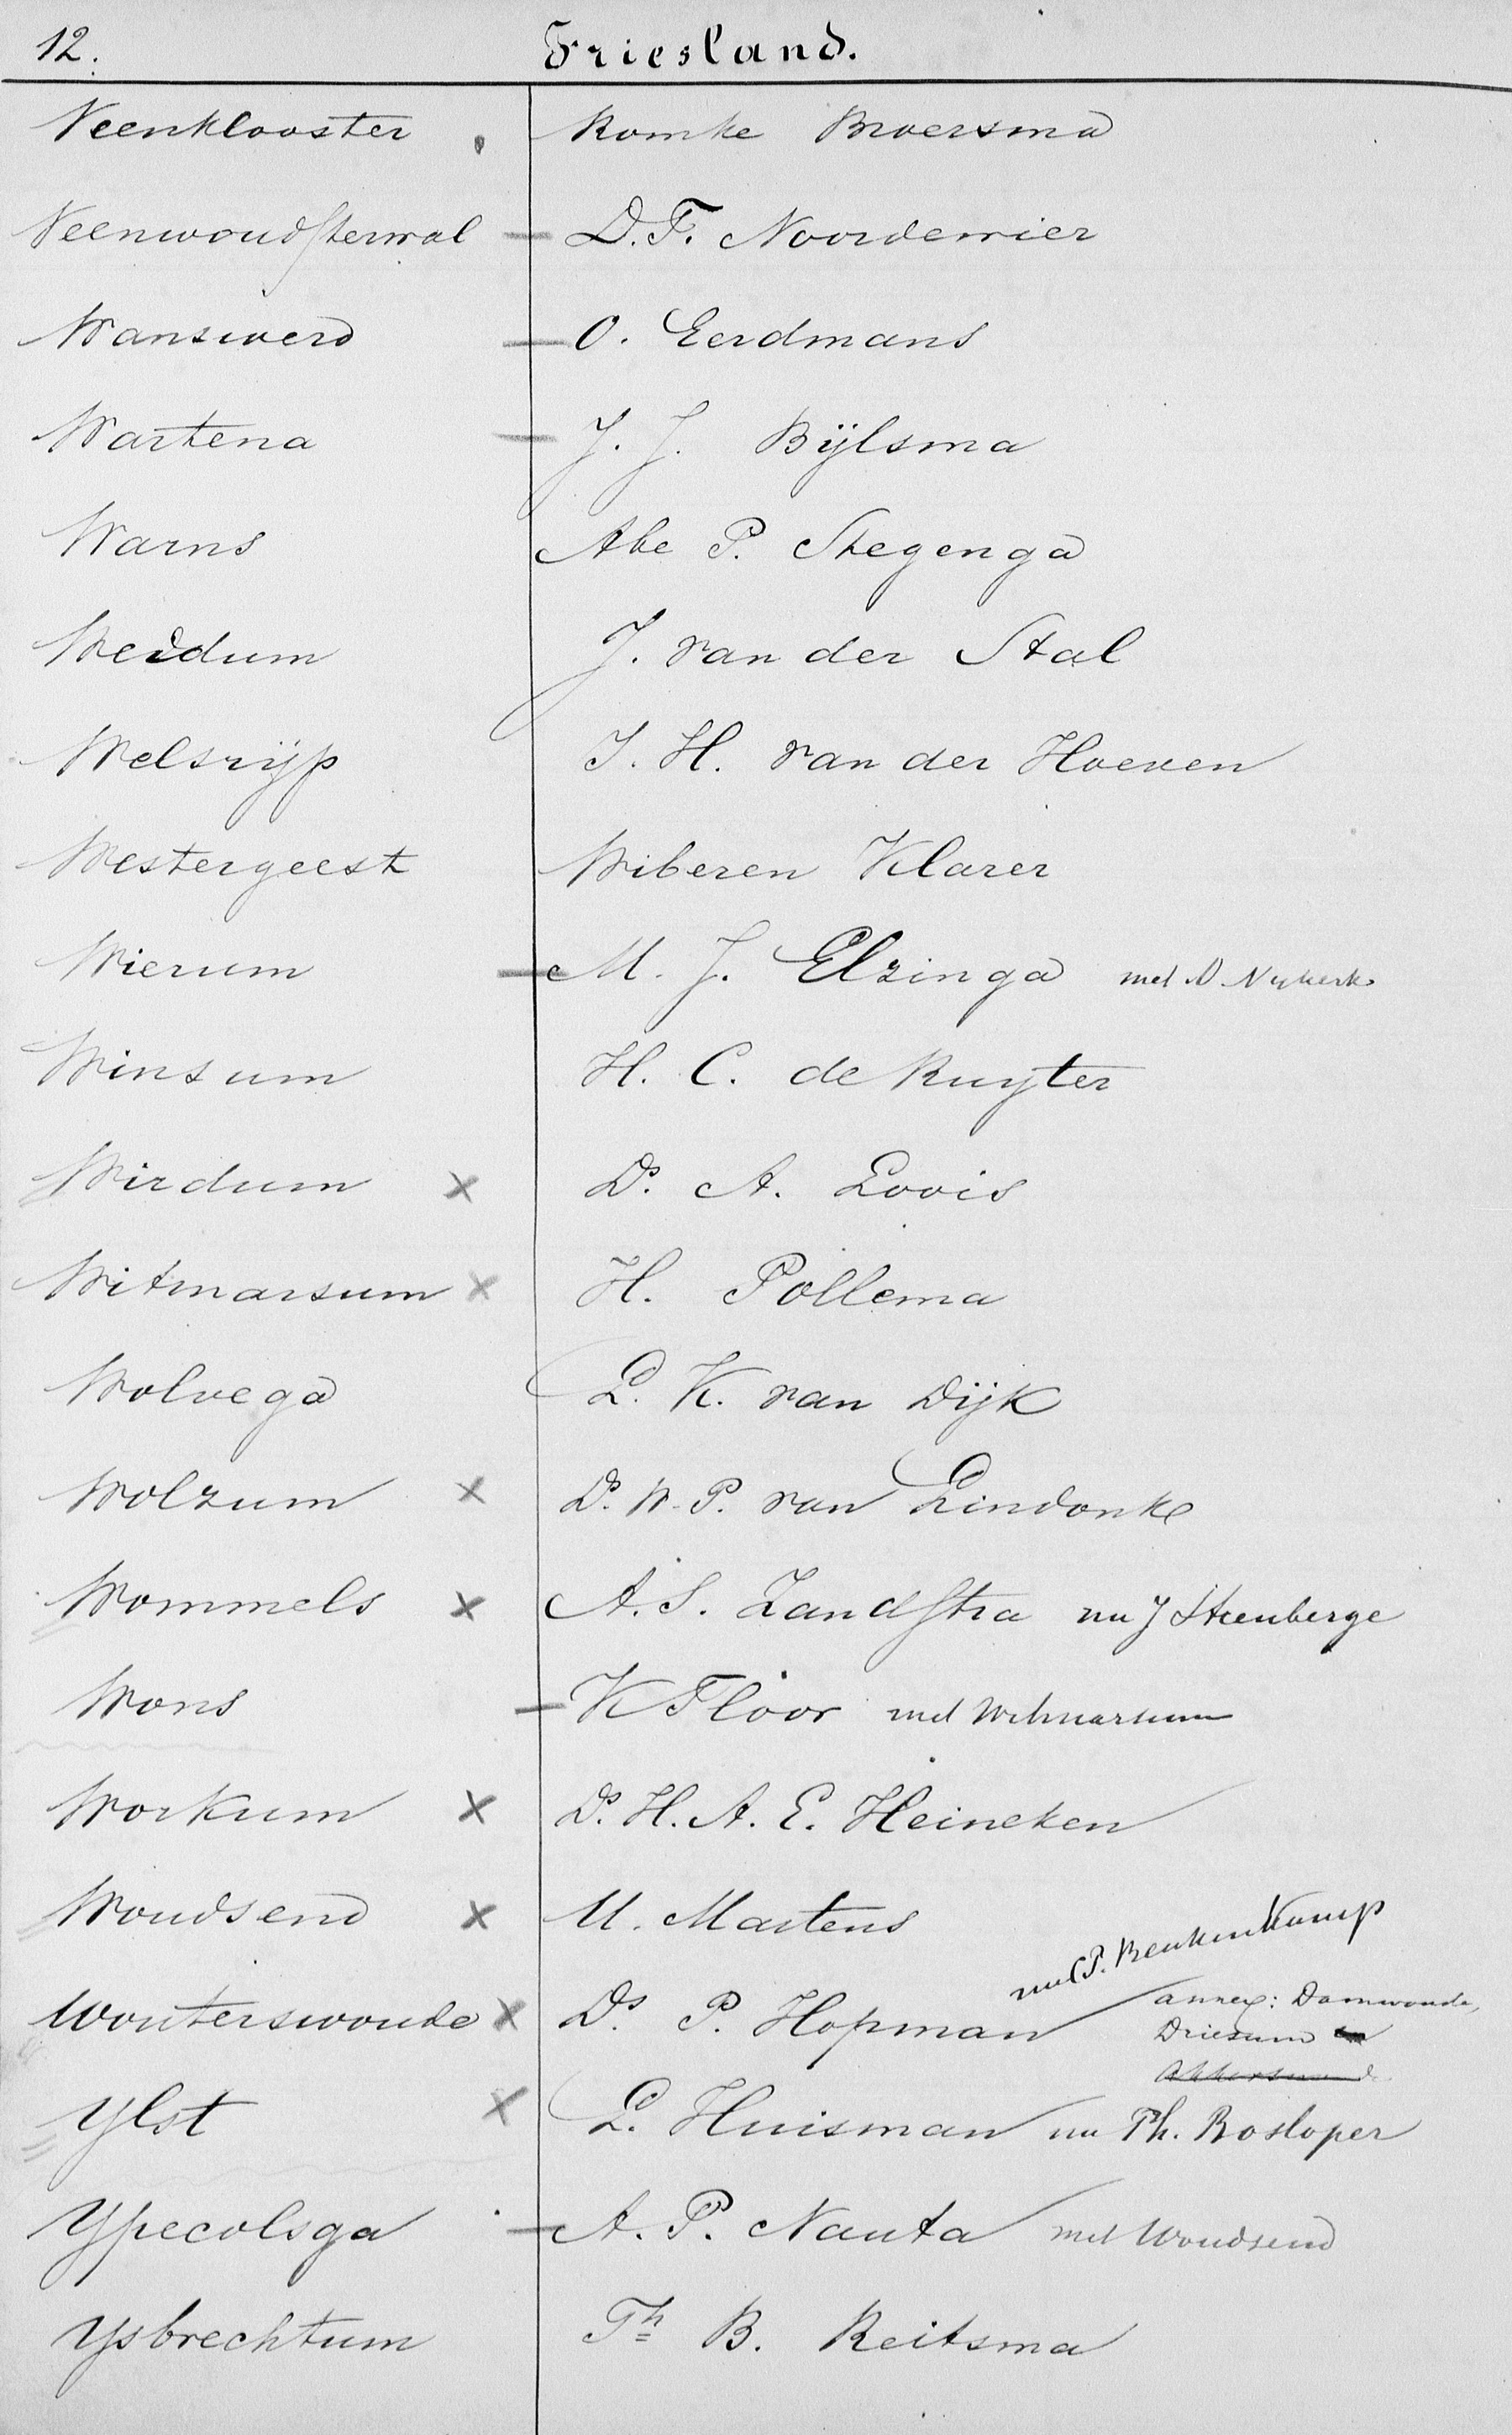 12. Friesland.
Veenklooster Romke Broersma
Veenwoudsterwal — D. F. Noordewier
Wanswerd — O. Eerdmans
Wartena — J. J. Bijlsma
Warns Abe P. Stegenga
Weidum J. van der Stal
Welsrijp J. H. van der Hoeven
Westergeest Wiberen Klarer
Wierum — M. J. Elzinga met N. Nykerk
Winsum H. C. de Ruyter
Wirdum x Ds. A. Loois
Witmarsum x H. Pollema
Wolvega L. K. van Dijk
Wolzum x Ds. W. P. van Lindonk
Wommels x A. S. Zandstra nu J Steenberge
Wons — K Floor met Witmarsum
Workum x Ds. H. A. E. Heineken
Woudsend x U. Martens
nu P. Beukenkamp
Wouterswoude x Ds P. Hopman annex: Damwoude,
Driesum en
Akkerswoude
Ylst x L. Huisman nu Th. Bosloper
Ypecolsga — A. P. Nauta met Woudsend
Ysbrechtum Th B. Reitsma